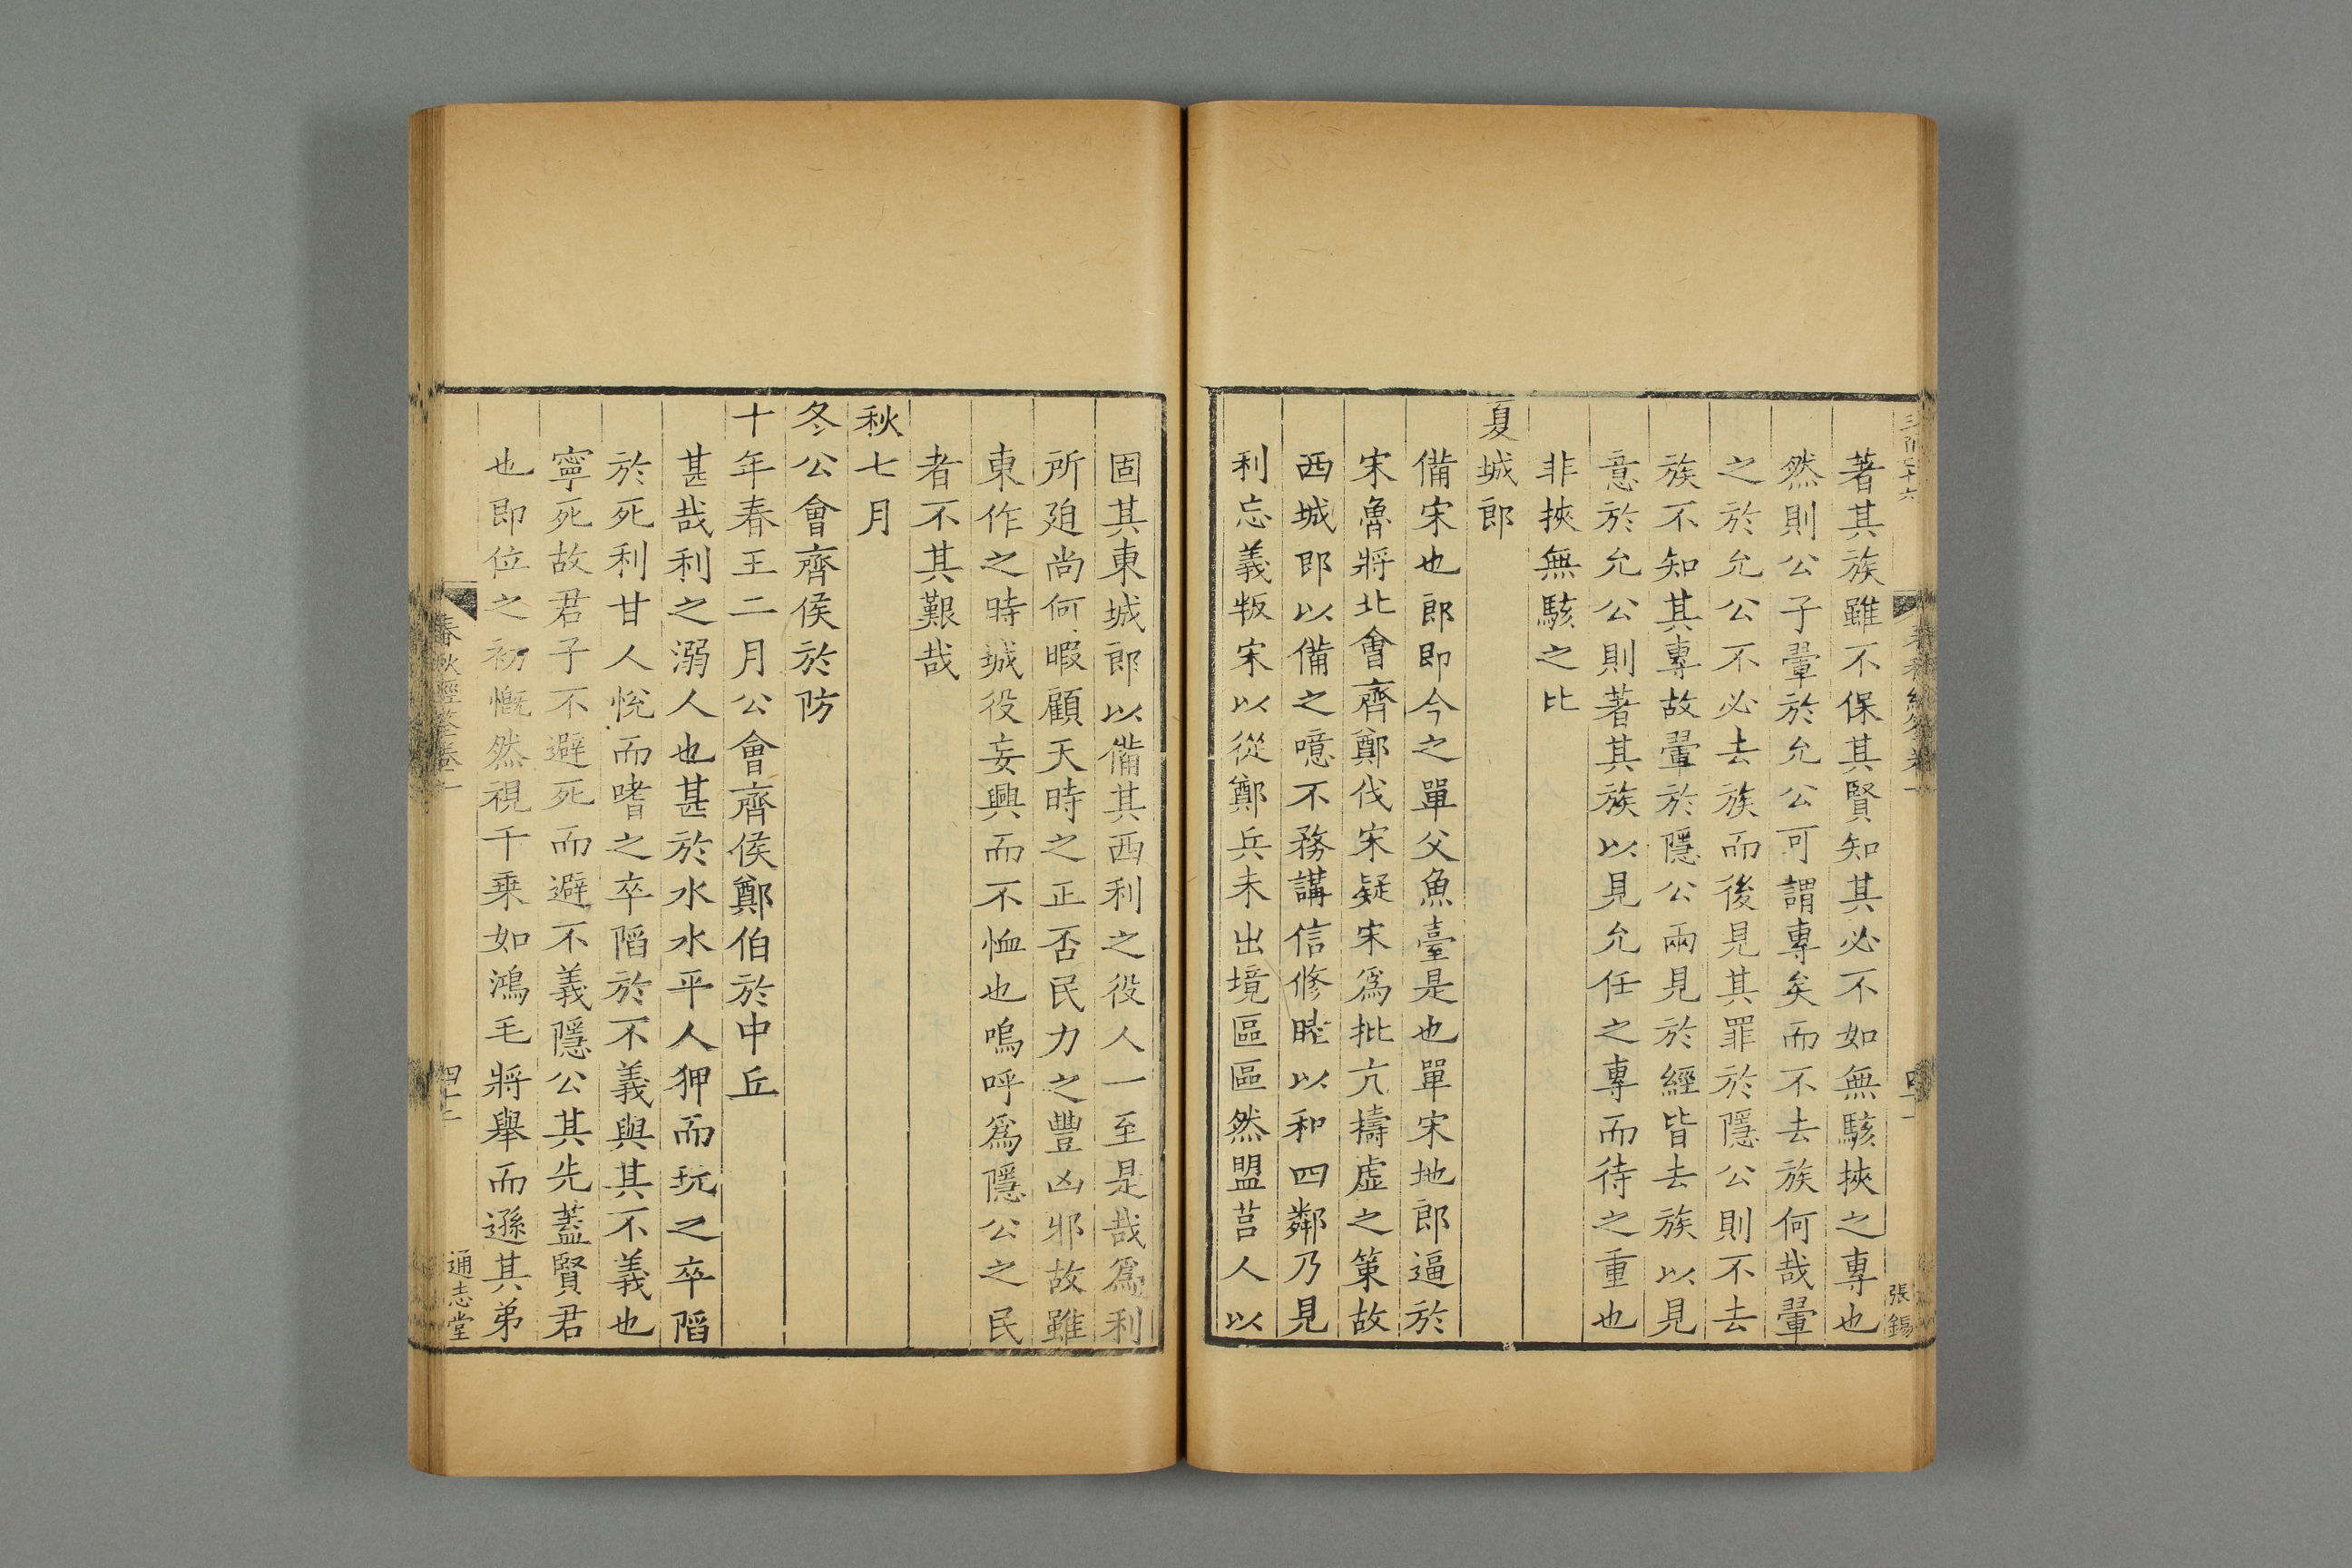 著其族雖不保其賢知其必不如無駭挾之專也
然則公子翬於允公可謂專矣而不去族何哉翬
之於允公不必去族而後見其罪於隱公則不去
族不知其專故翬於隱公兩見於經皆去族以見
意於允公則著其族以見允任之專而待之重也
非挾無駭之比
夏城郎
備宋也郎即今之單父魚臺是也單宋地郎逼於
宋魯將北會齊鄭伐宋疑宋爲批亢擣虛之策故
西城郎以備之噫不務講信修睦以和四鄰乃見
利忘義叛宋以從鄭兵未出境區區然盟莒人以
張錫
固其東城郎以備其西利之役人一至是哉爲利
所廹尚何暇顧天時之正否民力之豐凶邪故雖
東作之時城役妄興而不恤也嗚呼爲隱公之民
者不其艱哉
秋七月
冬公會齊侯於防
十年春王二月公會齊侯鄭伯於中丘
甚哉利之溺人也甚於水水平人狎而玩之卒陷
於死利甘人悅而嗜之卒陷於不義與其不義也
寧死故君子不避死而避不義隱公其先蓋賢君
也即位之初慨然視千乗如鴻毛將舉而遜其弟
春秋經筌卷一
通志堂